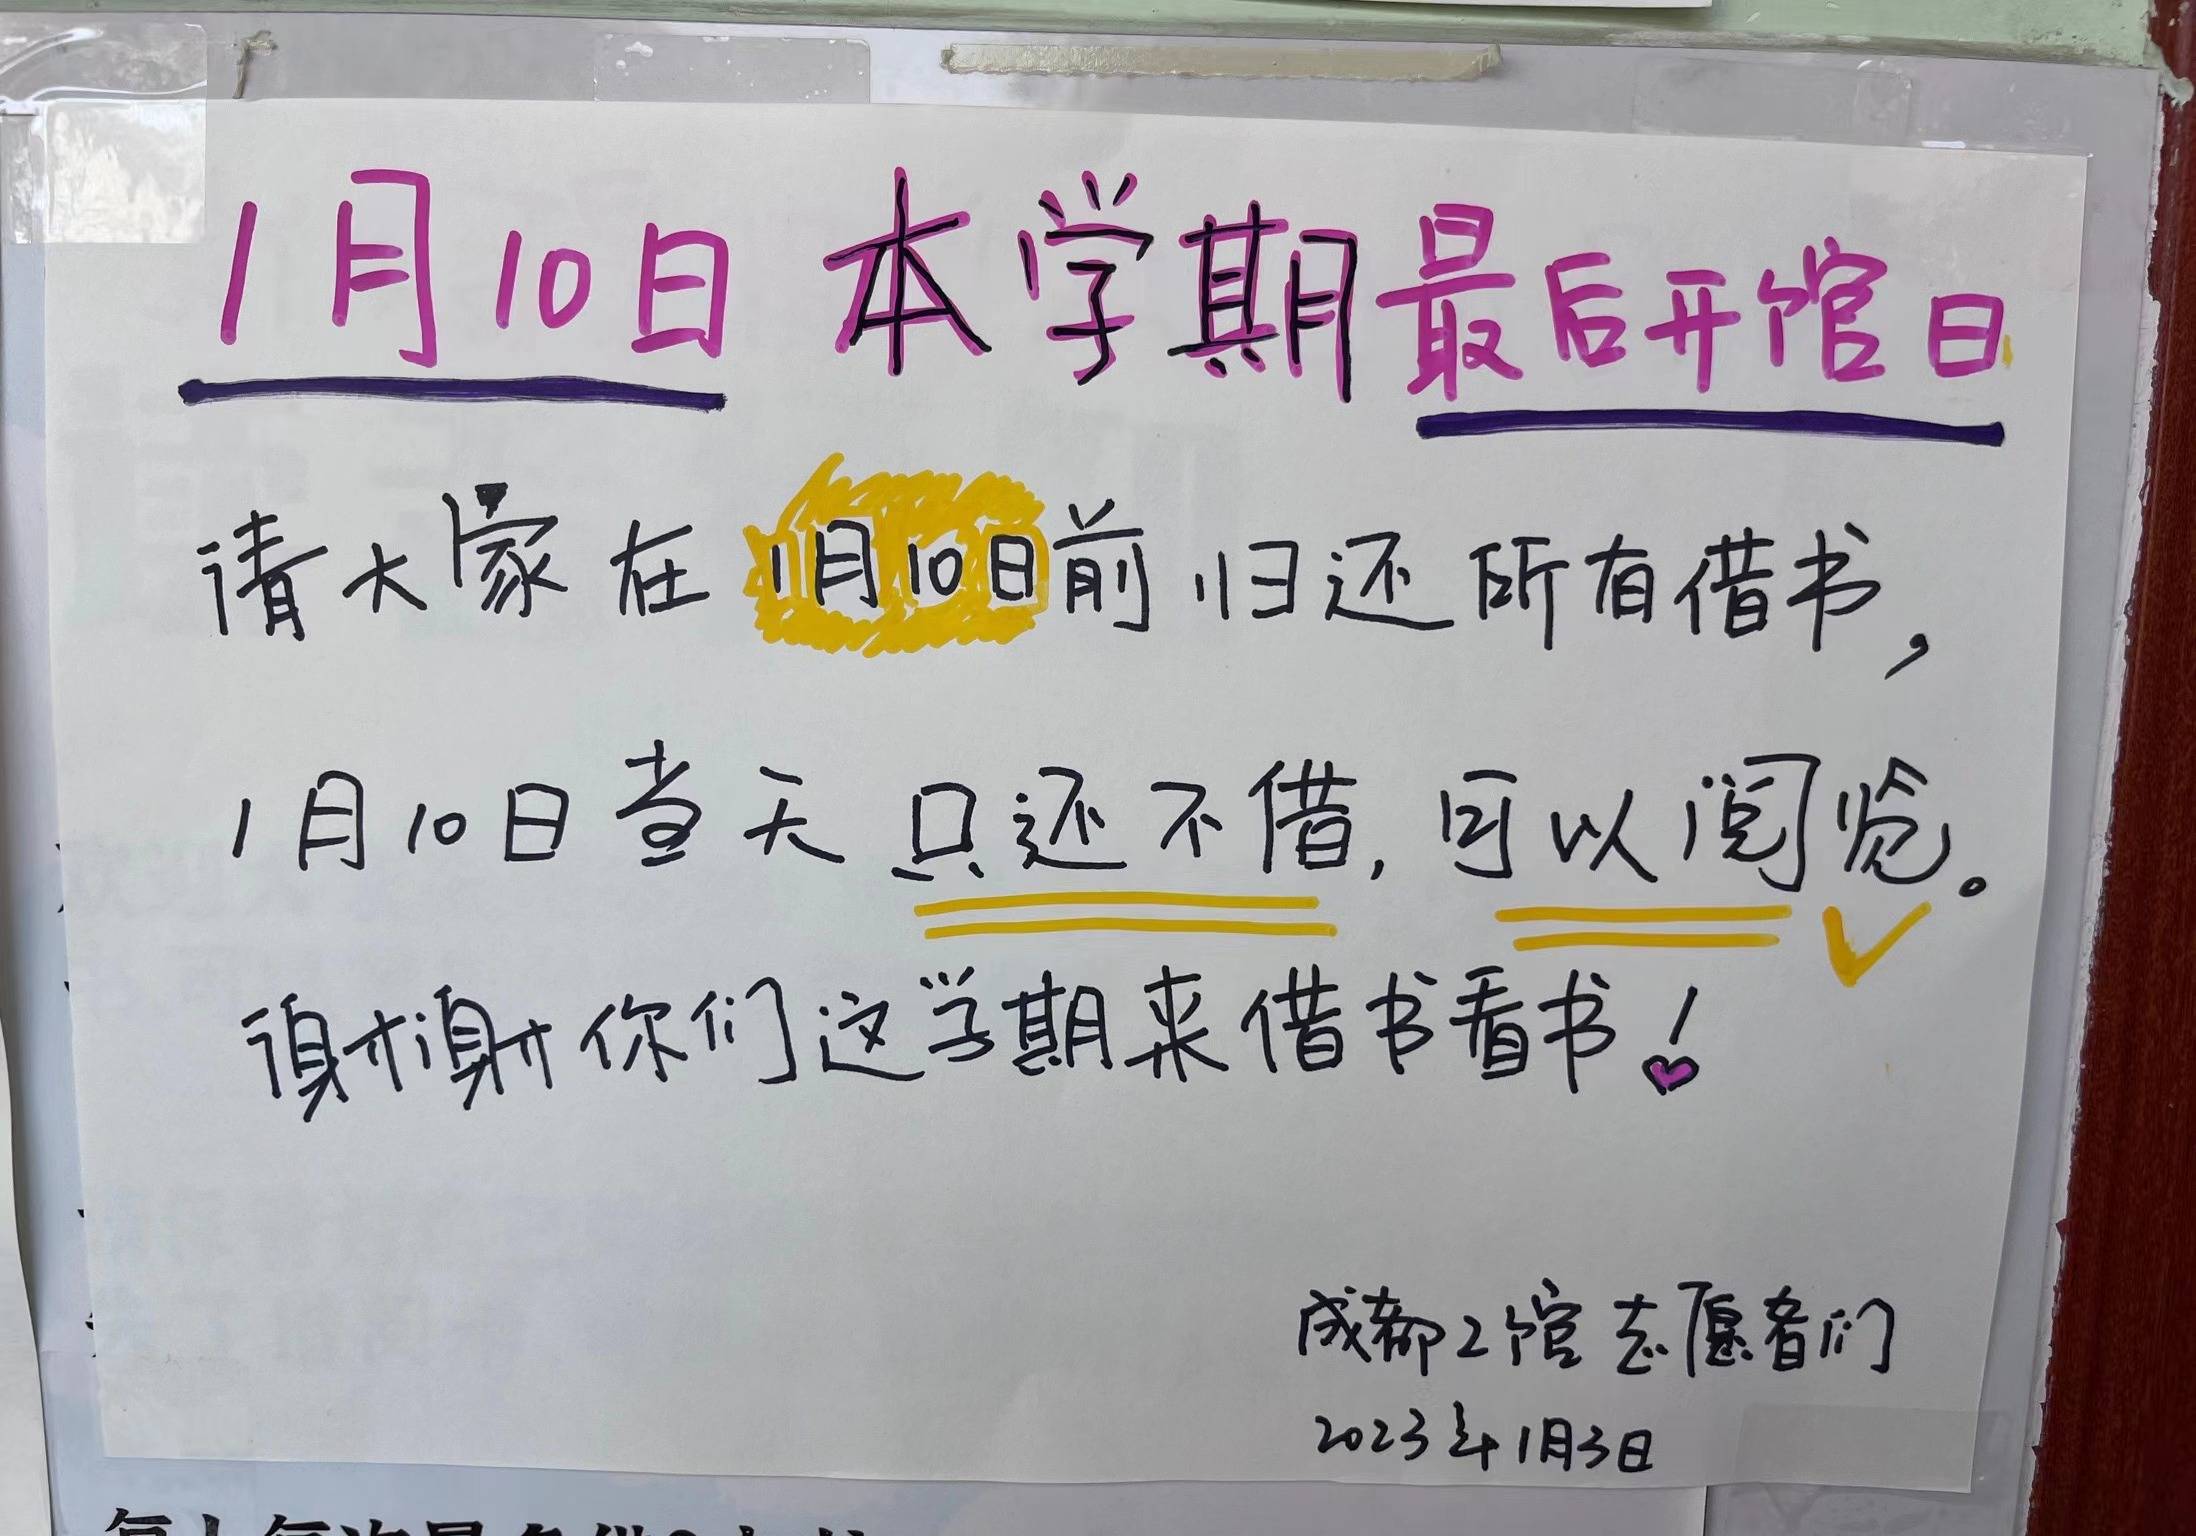 1月10日 本学期最后开馆日
请大家在1月10日前归还所有借书,
1月10日当天只还不借,可以阅览。
谢谢你们这学期来借书看书!
成都2馆志愿者们
2023年1月3日